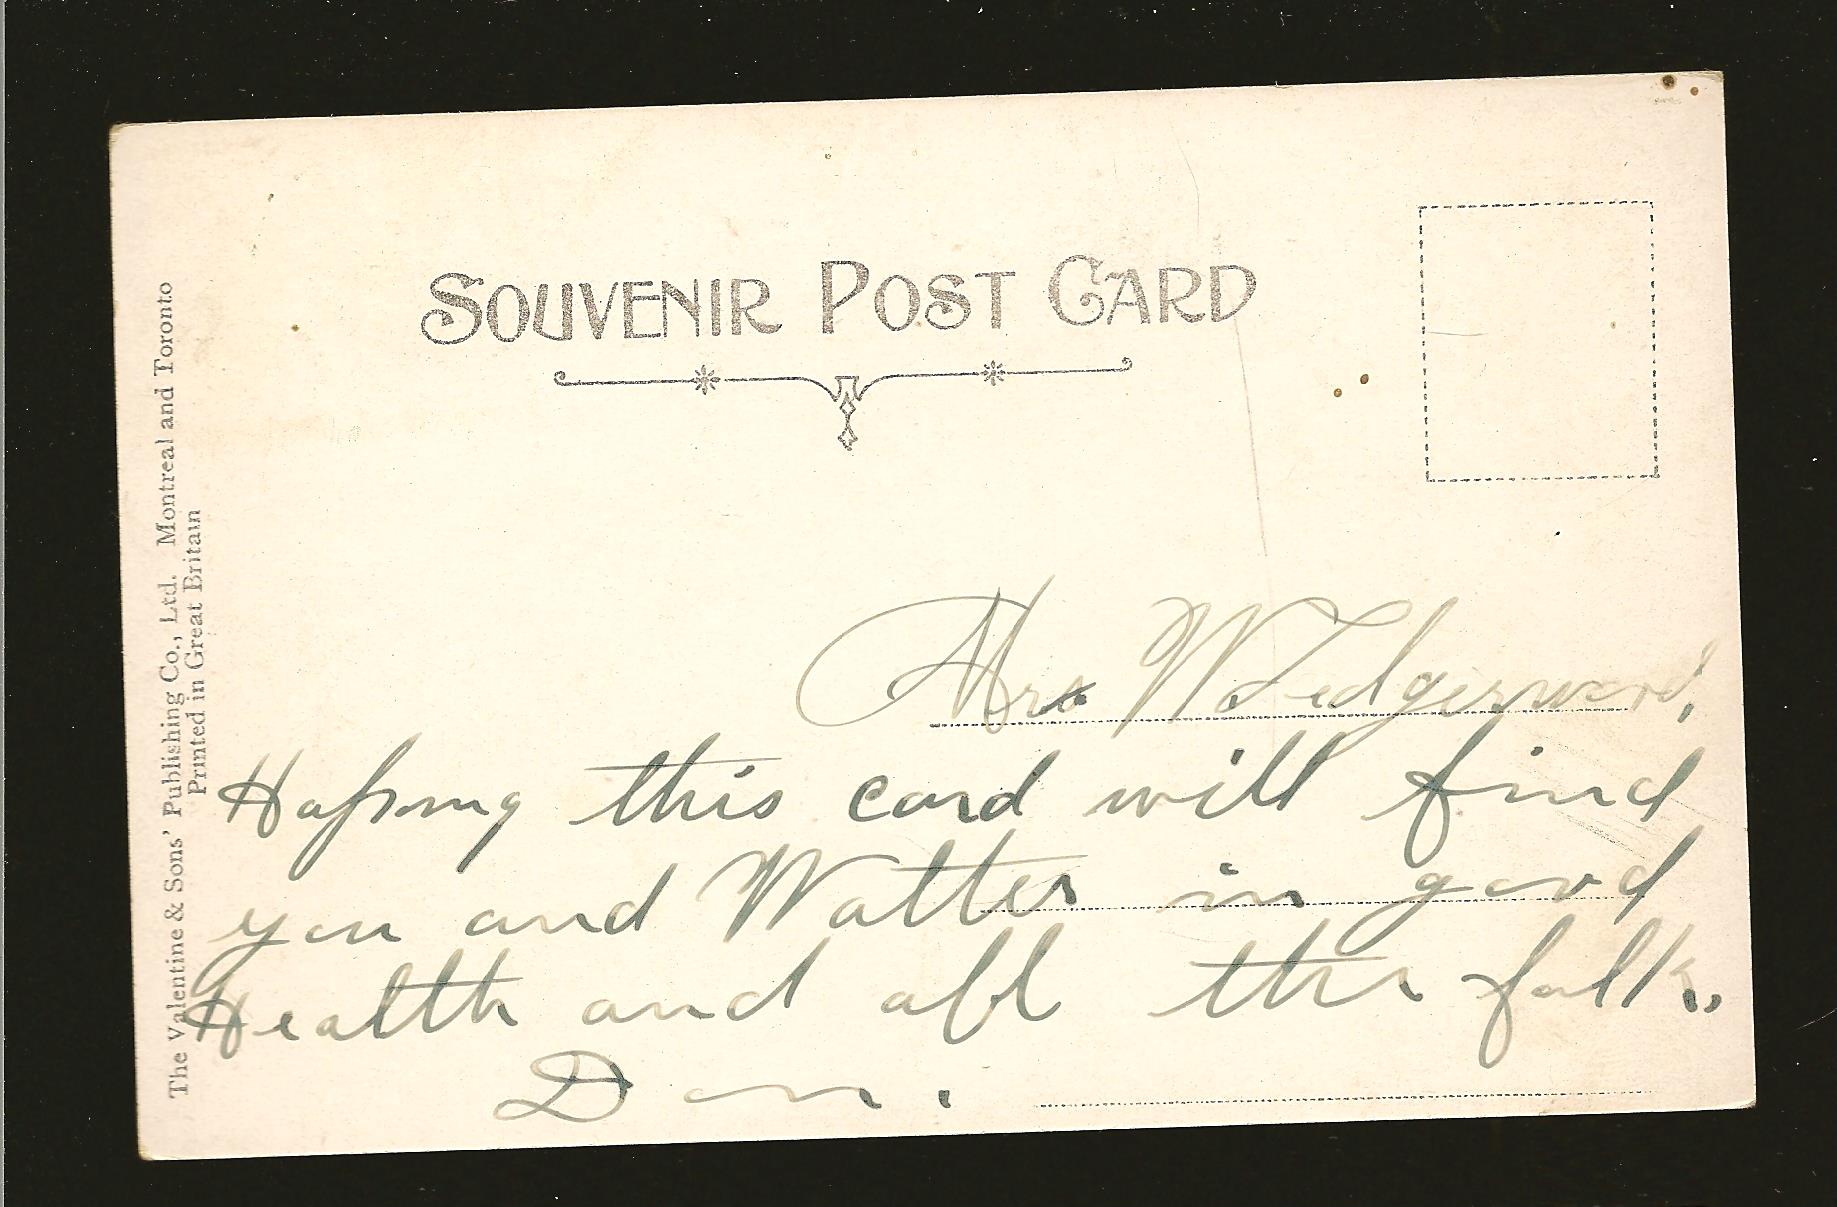 SOUVENIR POST CARD
The Valentine & Sons' Publishing Co., Ltd. Montreal and Toronto
Printed in Great Britain
Mrs W
Hoping this card will find
you and Walter in good
Health and all the folk.
Dan.